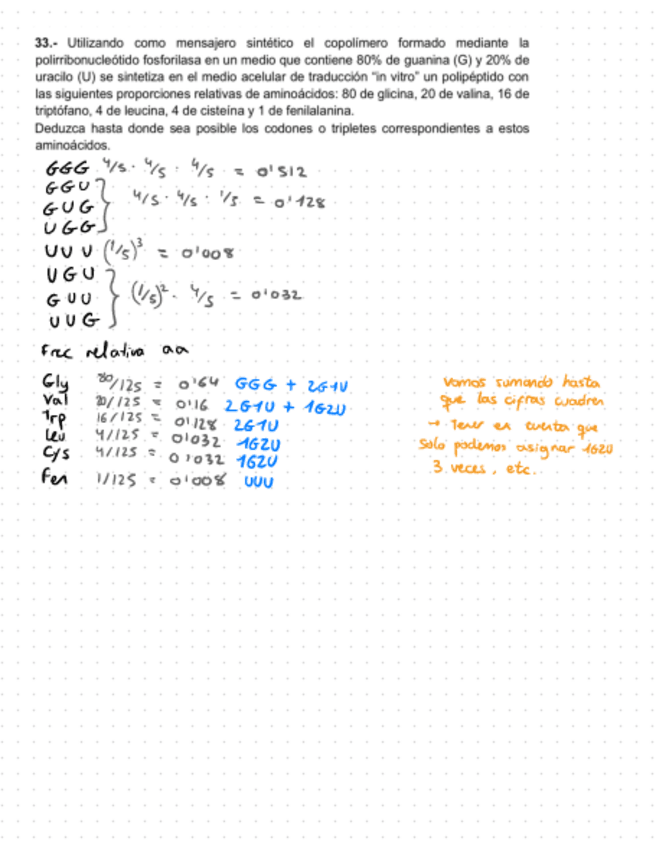 33.- Utilizando como mensajero sintético el copolímero formado mediante la
polirribonucleótido fosforilasa en un medio que contiene 80% de guanina (G) y 20% de
uracilo (U) se sintetiza en el medio acelular de traducción “in vitro” un polipéptido con
las siguientes proporciones relativas de aminoácidos: 80 de glicina, 20 de valina, 16 de
triptófano, 4 de leucina, 4 de cisteína y 1 de fenilalanina.
Deduzca hasta donde sea posible los codones o tripletes correspondientes a estos
aminoácidos.
GGG 4/5 · 4/5 · 4/5 = 0'512
GGU
GUG } 4/5 · 4/5 · 1/5 = 0'128
UGG
UUU (1/5)³ = 0'008
UGU
GUU } (1/5)² · 4/5 = 0'032
UUG
Frec relativa aa
Gly 80/125 = 0'64 GGG + 2G1U
Val 20/125 = 0'16 2G1U + 1G2U
Trp 16/125 = 0'128 2G1U
Leu 4/125 = 0'032 1G2U
Cys 4/125 = 0'032 1G2U
Fen 1/125 = 0'008 UUU
Vamos sumando hasta
que las cifras cuadren
→ Tener en cuenta que
solo podemos asignar 1G2U
3 veces, etc.